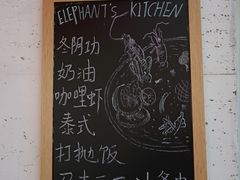 ELEPHANT's KITCHEN
冬阴功
奶油
咖哩虾
泰式
打抛饭